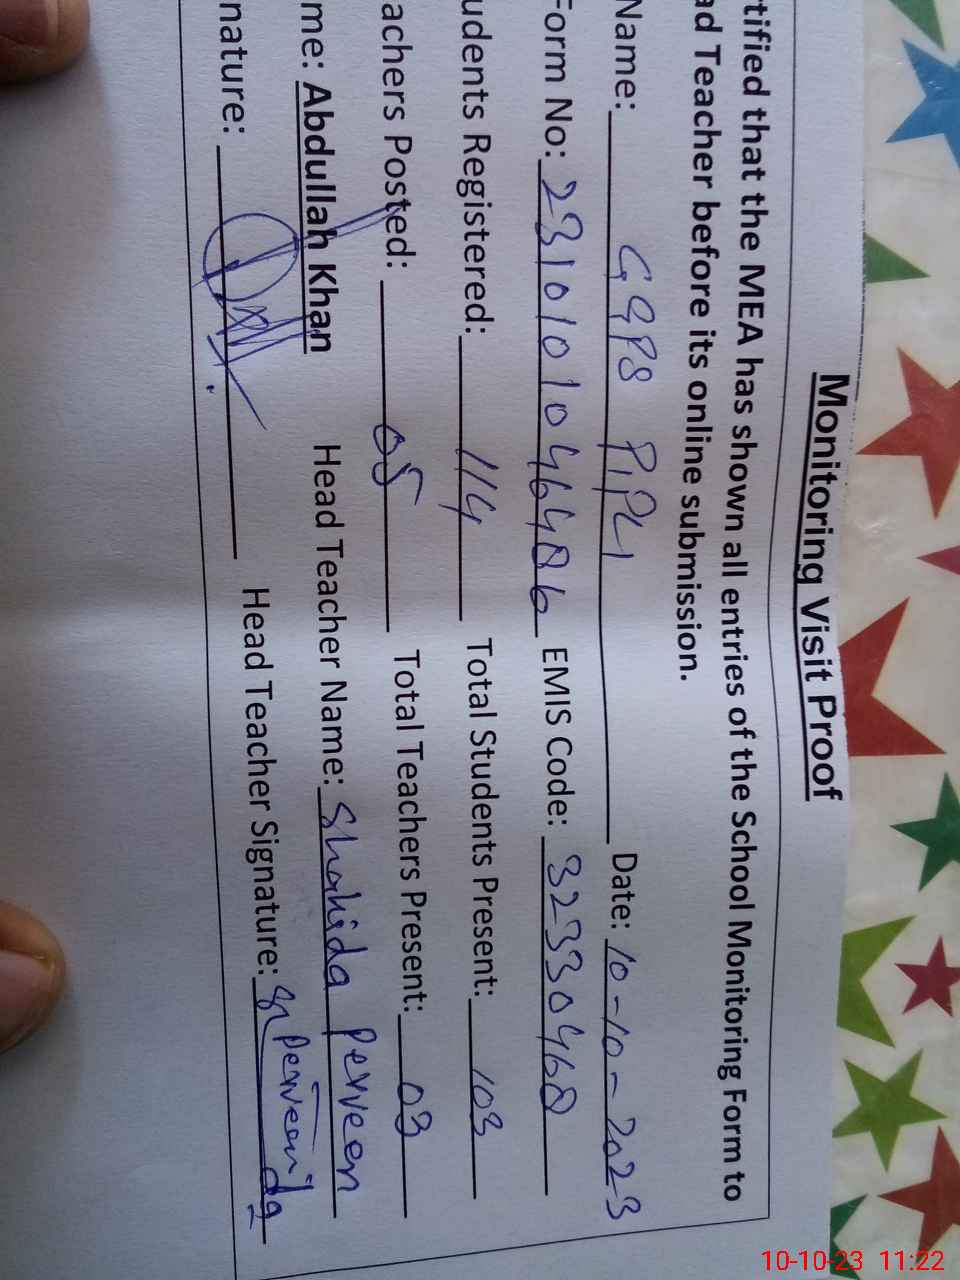 Monitoring Visit Proof
tified that the MEA has shown all entries of the School Monitoring Form to
ad Teacher before its online submission.
Name: GGPS PIPLI Date: 10-10-2023
Form No: 2310101046486 EMIS Code: 32330468
udents Registered: 114 Total Students Present: 103
achers Posted: 05 Total Teachers Present: 03
me: Abdullah Khan Head Teacher Name: Shahida Perveen
nature: Head Teacher Signature: Perveen
10-10-23 11:22